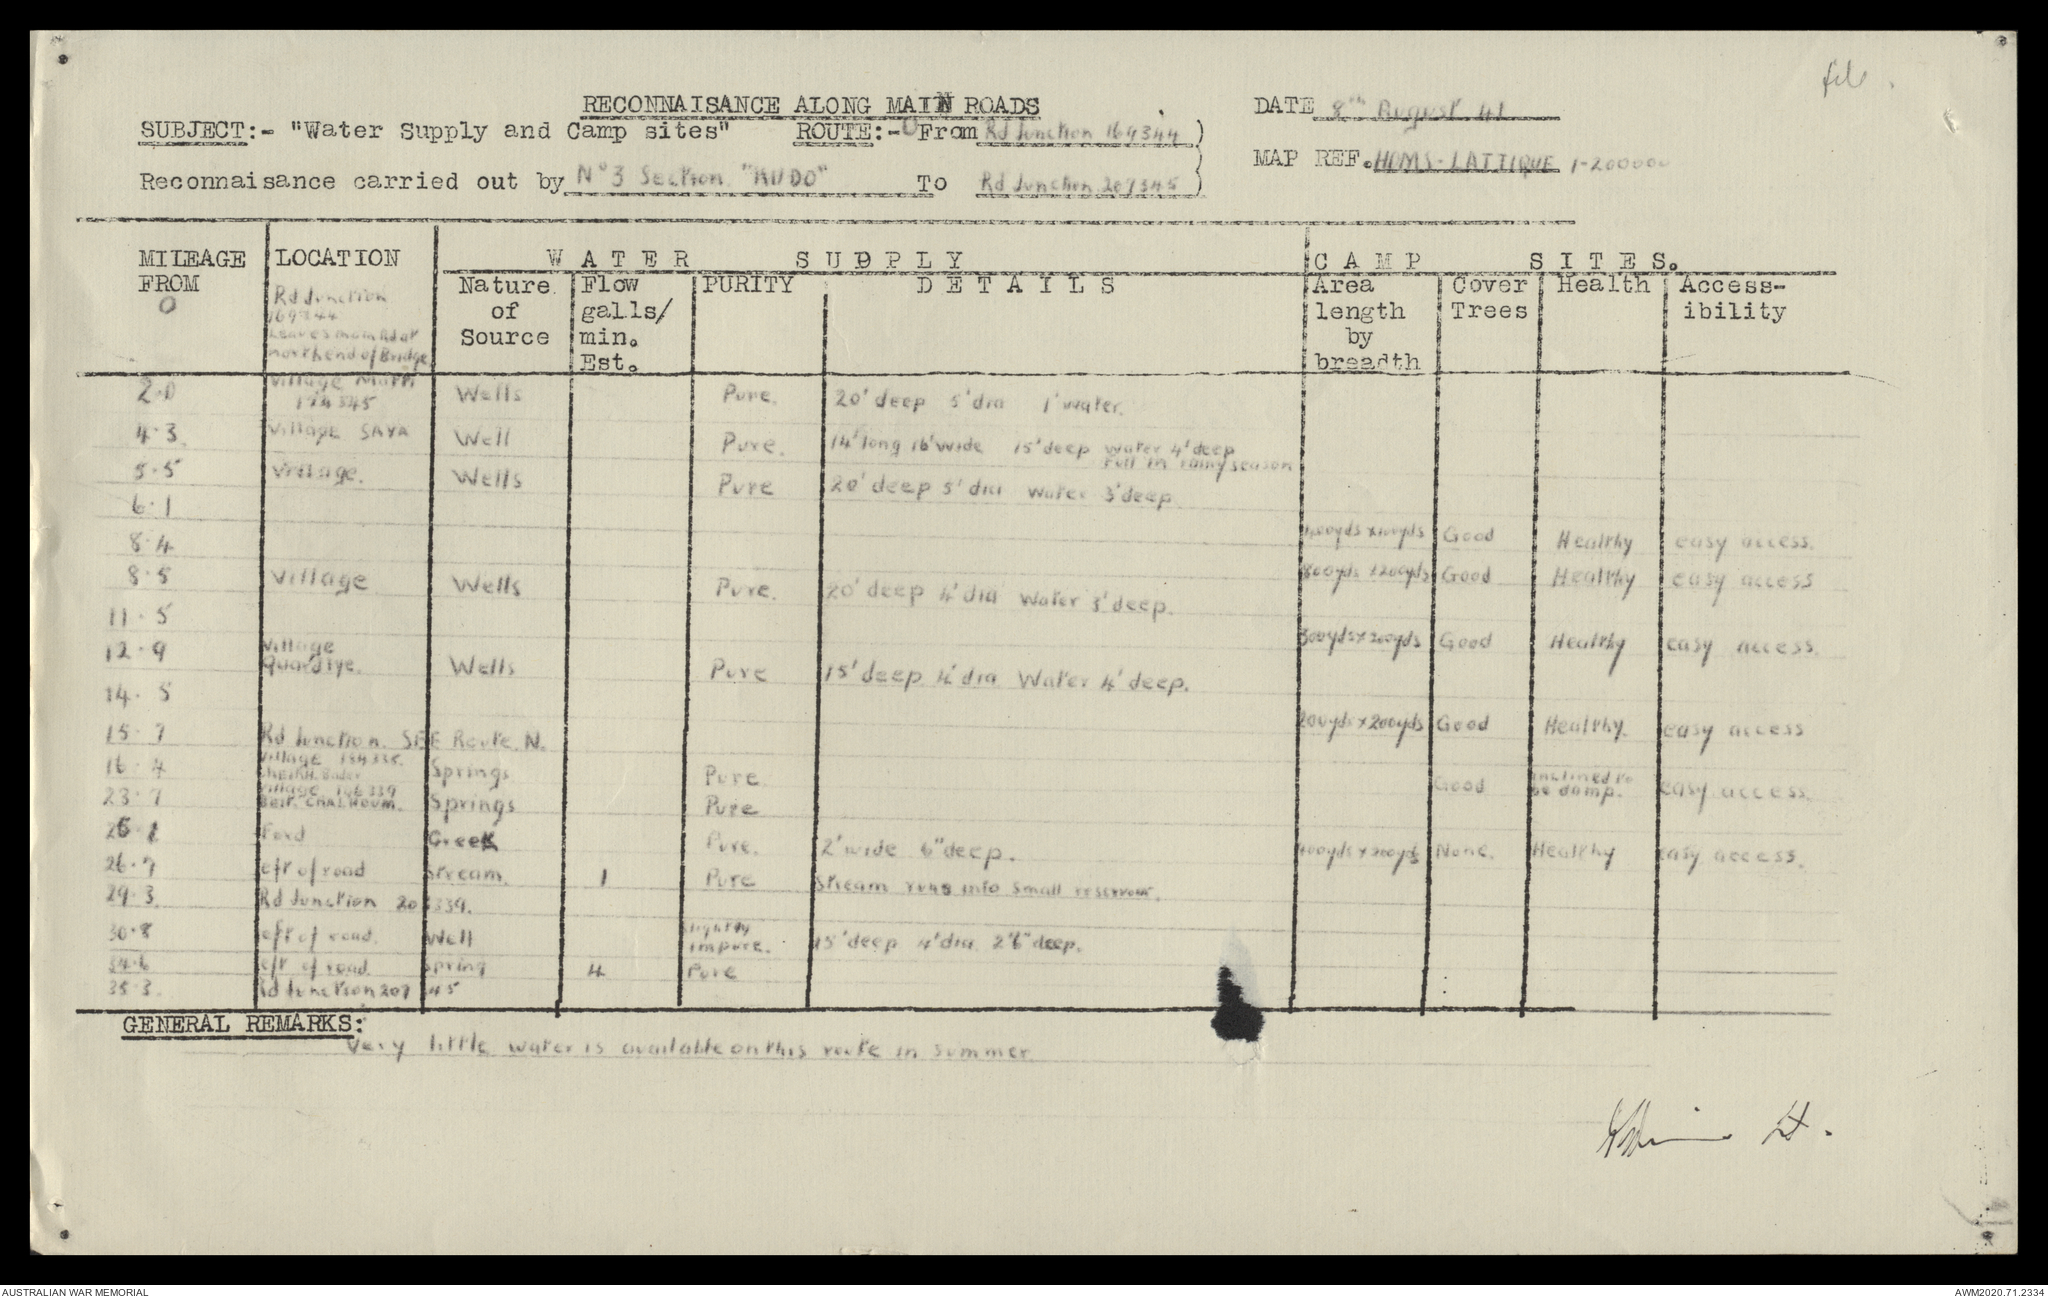 file
RECONNAISANCE ALONG MAIN ROADS
DATE 8th August 41
SUBJECT:- "Water Supply and Camp sites" ROUTE:- O From Rd Junction 164344 )
MAP REF. HOMS-LATTIQUE 1-200000
Reconnaisance carried out by No 3 Section "RUDO" To Rd Junction 207345 )
MILEAGE FROM LOCATION WATER SUPPLY CAMP SITES.
Nature of Source Flow galls/ min. Est. PURITY DETAILS Area length by breadth Cover Trees Health Access- ibility
0 Rd Junction 169344 Leaves main Rd at north end of Bridge
2.0 Village 174345 Wells Pure. 20' deep 5' dia 1' water.
4.3 Village SAYA Well Pure. 14' long 16' wide 15' deep water 4' deep Full in rainy season
5.5 Village. Wells Pure 20' deep 5' dia water 3' deep
6.1
8.4 Good Healthy easy access.
8.5 Village Wells Pure. 20' deep 4' dia water 3' deep. 800yds x 200yds Good Healthy easy access
11.5 300yds x 200yds Good Healthy easy access
12.9 Village Quardiye. Wells Pure 15' deep 4' dia Water 4' deep.
14.5 200yds x 200yds Good Healthy. easy access
15.7 Rd Junction. SEE Route. N.
16.4 Village 184335. CHEIKH. Springs Pure Good inclined to be damp. easy access.
23.7 Village 196339 Beit. CHALHOUM. Springs Pure
25.1 Ford Creek Pure. 2' wide 6" deep. 400yds x 200yds None. Healthy easy access.
26.7 eft of road Stream. 1 Pure Stream runs into small reservoir.
29.3 Rd Junction 20 339.
30.8 eft of road. Well slightly impure. 15' deep 4' dia 2'6" deep.
34.6 eft of road. Spring 4 Pure
35.3. Rd Junction 207 45
GENERAL REMARKS:
Very little water is available on this route in summer.
Lt.
AUSTRALIAN WAR MEMORIAL
AWM2020.71.2334